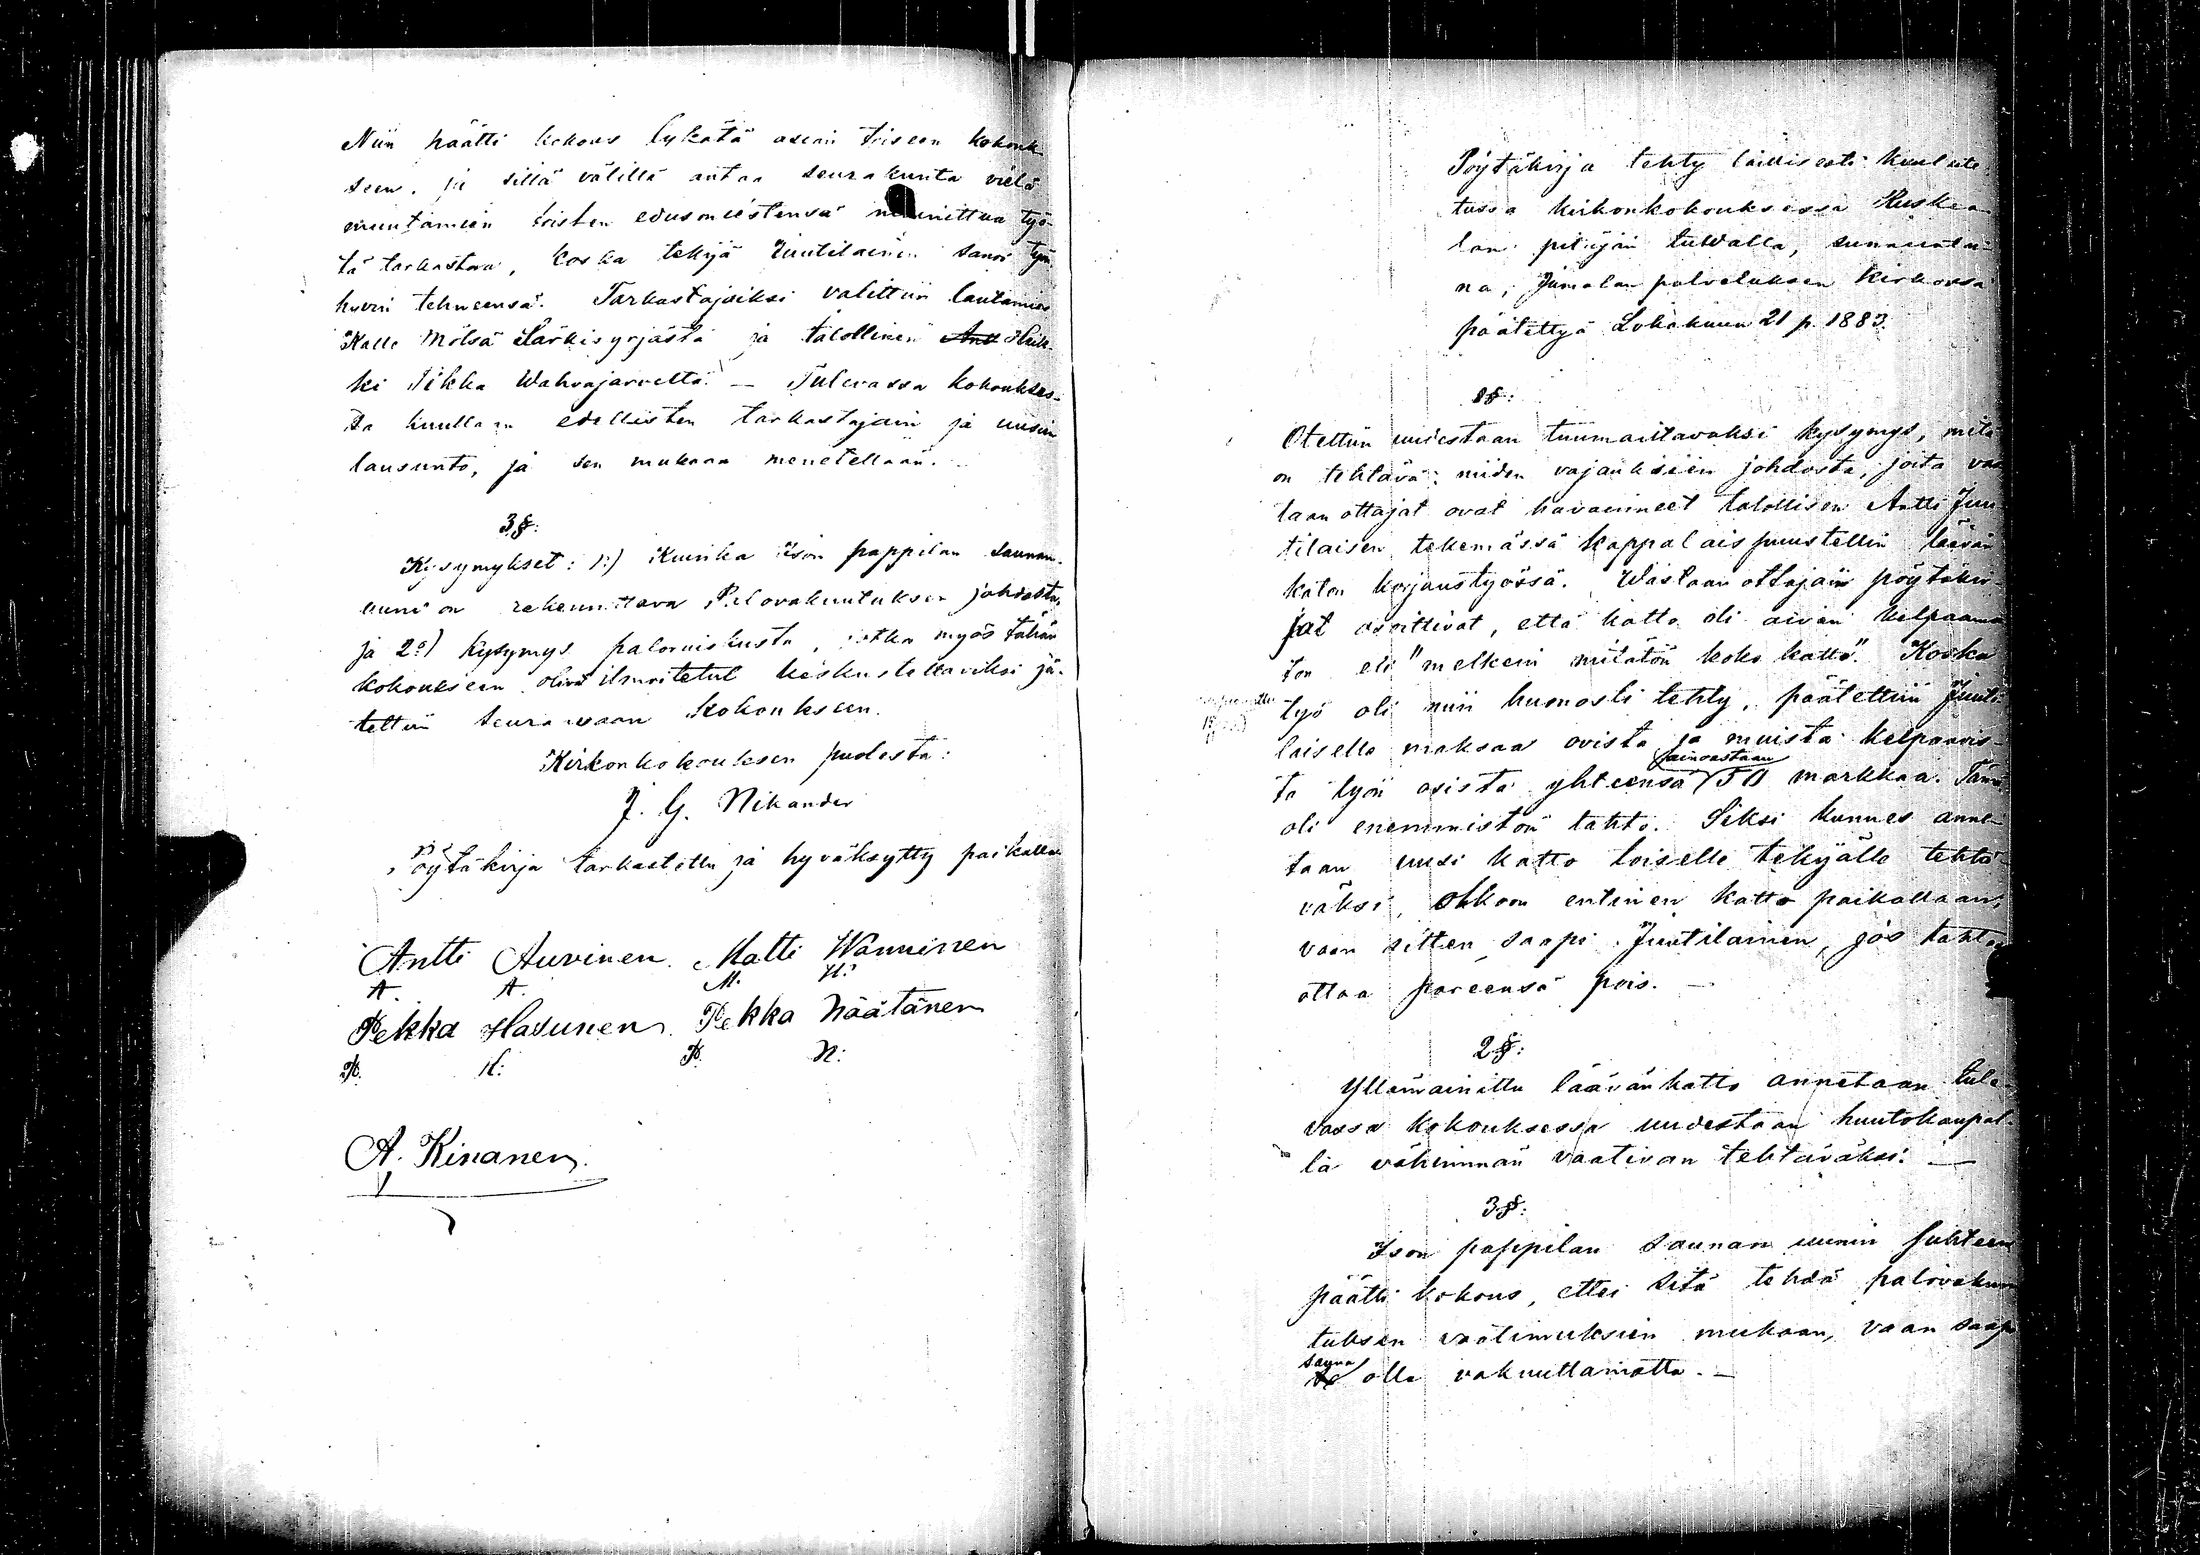 Niin päätti kokous lykätä asian toiseen kokouk
seen, ja sillä välillä antaa seurakunta vielä
muutamien toisten edusmiestensä mainittua työ-
tä tarkastaa, koska tekijä Juutilainen sanoi työn
hyvin tehneensä. Tarkastajaiksi valittiin lautamies
Kalle Mölsä Särkisyrjästä ja talollinen Antt Heik-
ki Pekka Wahvajärveltä. — Tulevassa kokoukses-
sa kuullaan edellisten tarkastajain ja uusien
lausunto, ja sen mukaan menetellään.
3§:
Kysymykset: 1:) Kuinka ison pappilan saunan-
uuni on rakennettava Palovakuutuksen johdosta,
ja 2:) kysymys paloruiskusta, jotka myös tähän
kokoukseen olivat ilmoitetut keskusteltaviksi jä-
tettiin seuraavaan kokoukseen.
Kirkonkokouksen puolesta:
J. G. Nikander
Pöytäkirja tarkastettu ja hyväksytty paikalla
Antti Auvinen. Matti Wanninen
A. A. M. W:
Pekka Hasunen. Pekka Näätänen
P. H: P. N:
A. Kinanen.
Pöytäkirja tehty laillisesti kuulute-
tussa kirkonkokouksessa Ruskea-
lan pitäjän tuvalla, sunnuntai-
na, Jumalan palveluksen kirkossa
päätettyä Lokakuun 21 p. 1883.
1§:
Otettiin uudestaan tuumailtavaksi kysymys, mitä
on tehtävä niiden vajauksien johdosta, joita vas
taan ottajat ovat havainneet talollisen Antti Juu
tilaisen tekemässä kappalaispuustellin läävän
katon korjaustyössä. Wastaan ottajain pöytäkir-
jat osoittivat, että katto oli aivan kelpaama
ton eli "melkein mitätön koko katto". Koska
työ oli niin huonosti tehty, päätettiin Juuti
laiselle maksaa ovista ja muista kelpaavis-
ta työn osista yhteensä ainoastaan 50 markkaa. Tämä
oli enemmistön tahto. Siksi kunnes anne-
taan uusi katto toiselle tekijälle tehtä-
väksi, olkoon entinen katto paikallaan,
vaan sitten saapi Juutilainen, jos tahtoo
ottaa pareensä pois. —
2§:
Yllämainittu läävän katto annetaan tule-
vassa kokouksessa uudestaan huutokaupal-
la vähimmän vaativan tehtäväksi. —
3§:
Ison pappilan saunan uunin suhteen
päätti kokous, ettei sitä tehdä palovakuu
tuksen vaatimuksien mukaan, vaan saapi
sauna olla vakuuttamatta. —